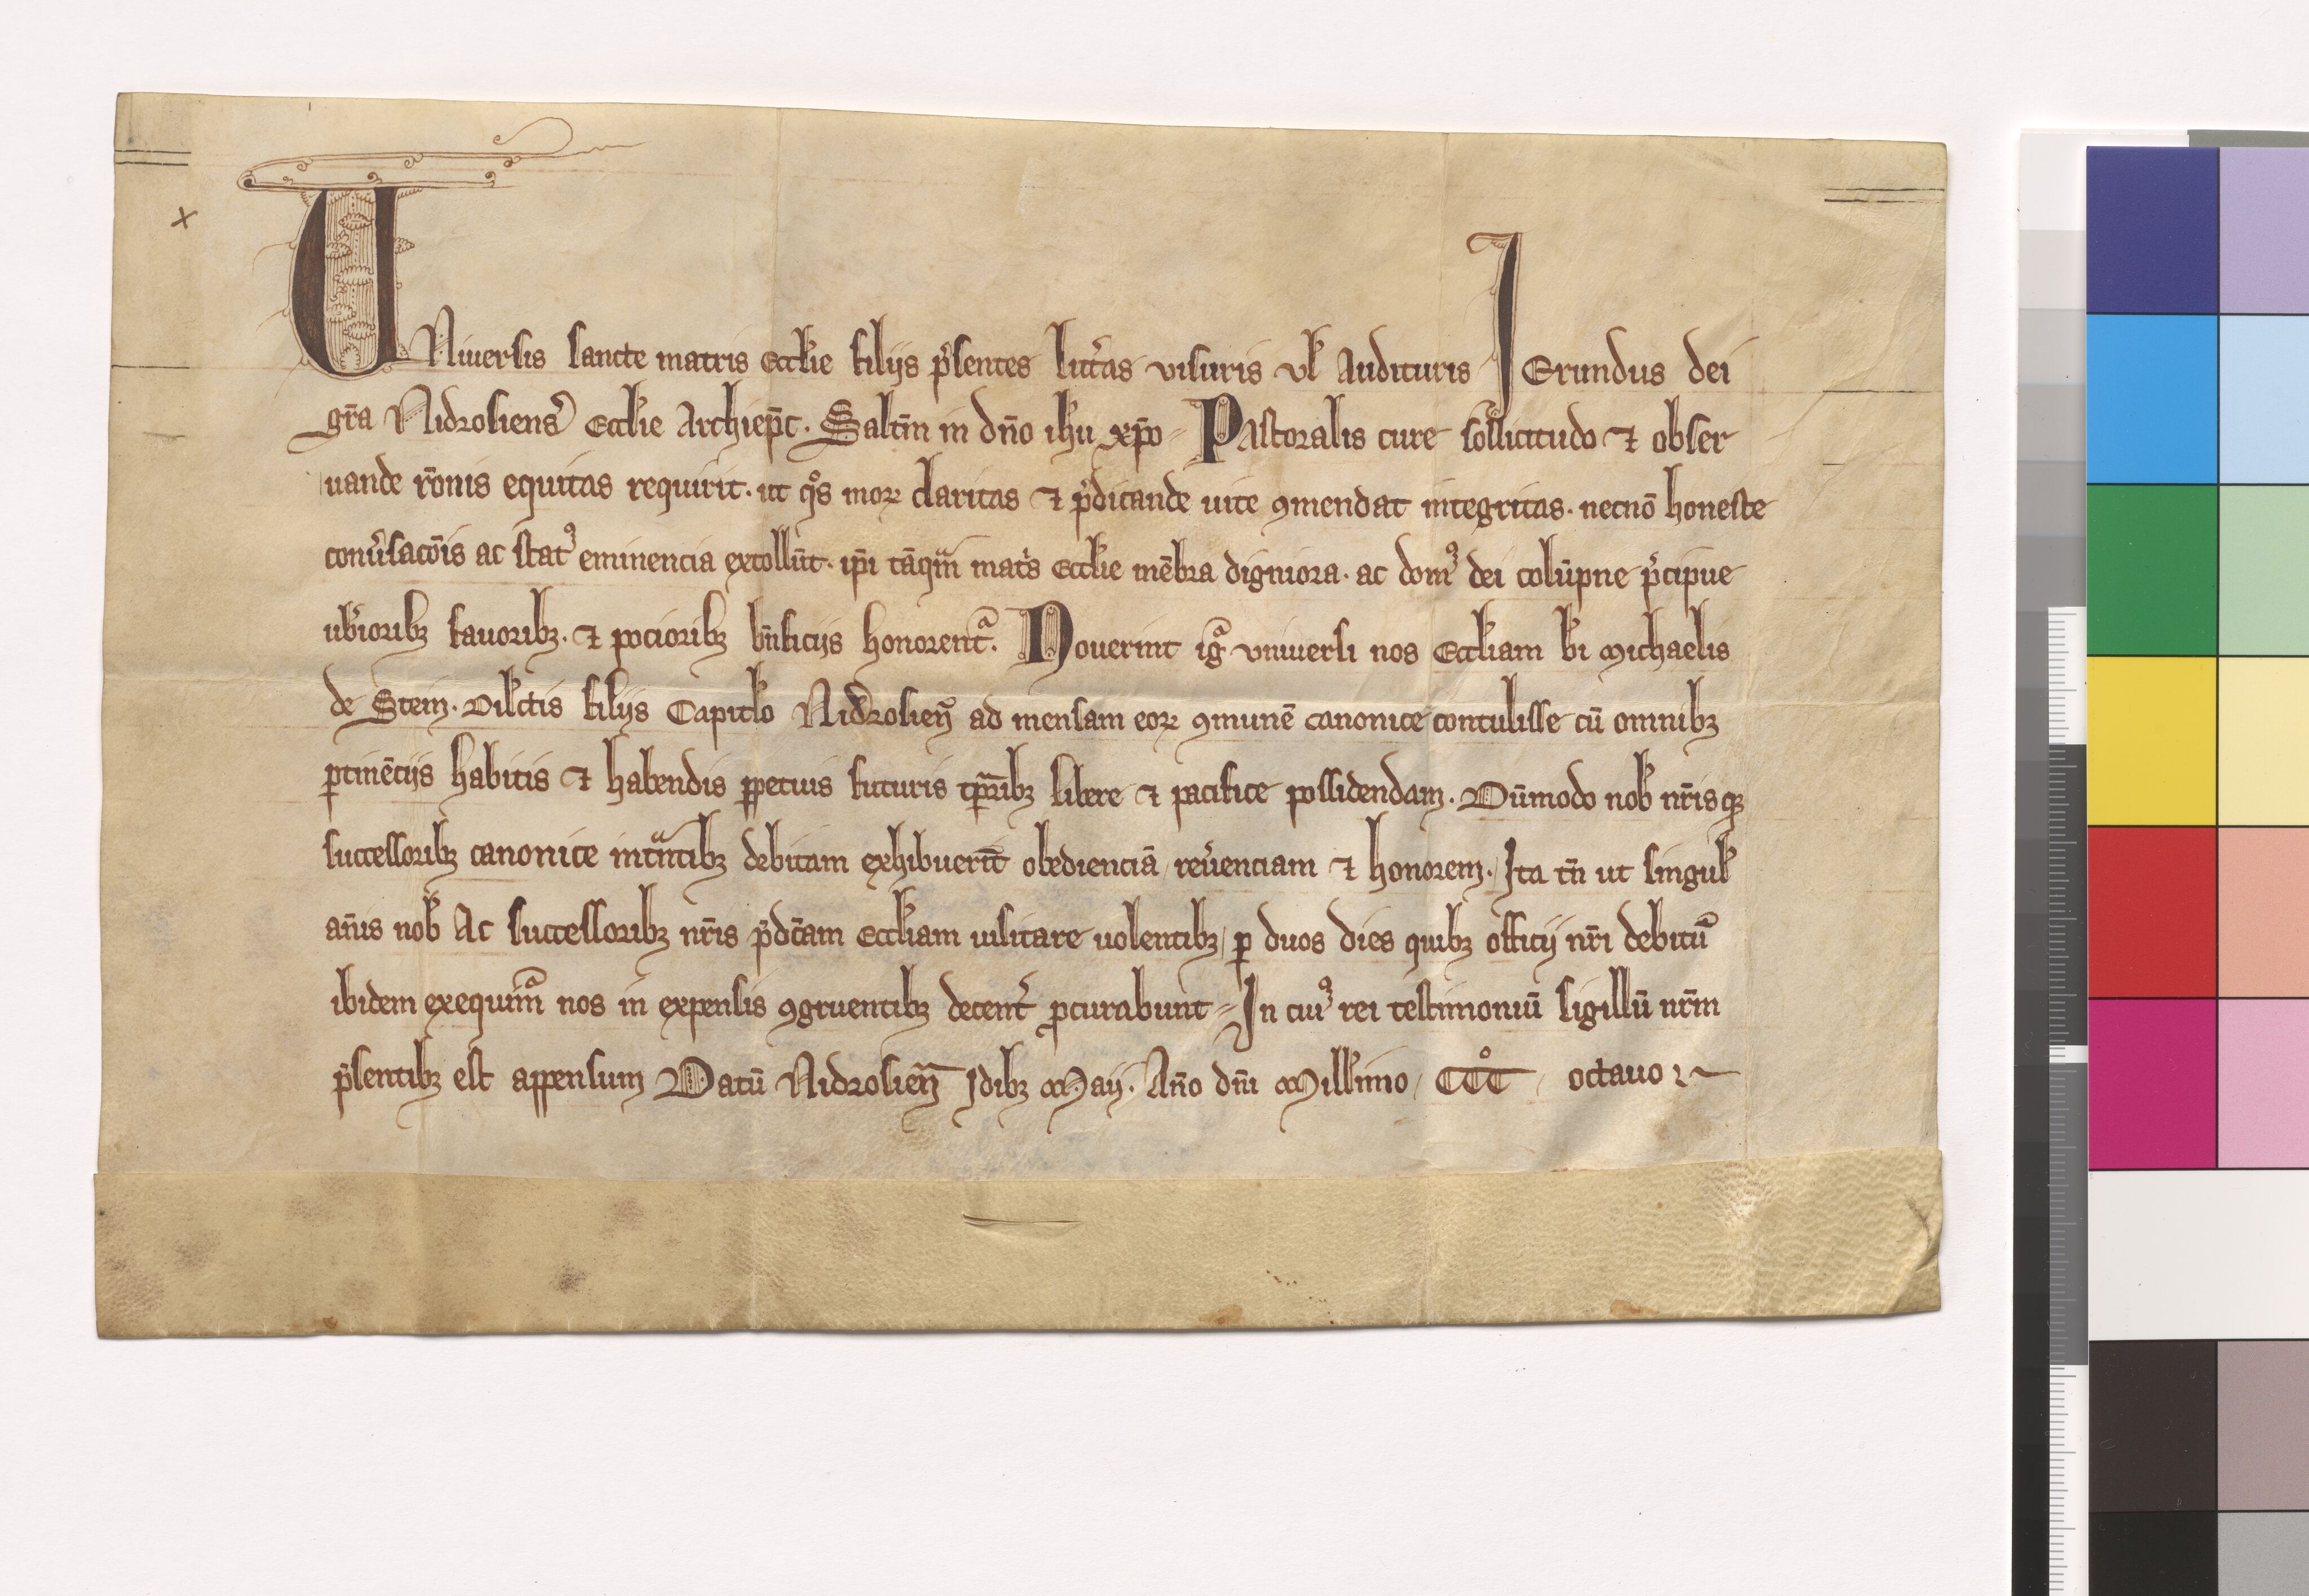 x
VNiuersis sancte matris Eccłie filijs p̃sentes litt̃as visuris vł Audituris JErundus dei
gr̄a Nidrosienš Eccłie Archiep̄c. Salt̄m in dn̄o ihu xp̄o Pastoralis cure sollicitudo ⁊ obser
uande rōnis equitas requirit. ut qͦs moꝝ claritas ⁊ p̃dicande uite ꝯmendat integritas. necnō honeste
conũsacōis ac statꝰ eminencia extollūt. ip̄i tāqᵃm mat̃s Eccłie mēbra digniora. ac domꝰ dei colūpne p̃cipue
ub̃ioribꝫ fauoribꝫ. ⁊ pocioribꝫ bn̄ficijs honorentᵃ. Nouerint igᵃ vniuersi nos Eccłiam bi Michaelis
de Stein. Dilc̄tis filijs Capitło Nidrosień ad mensam eoꝝ ꝯmunē canonice contulisse cū omnibꝫ
ꝑtinēcijs habitis ⁊ habendis ꝑpetuis futuris tp̄ribꝫ libere ⁊ pacifice possidendam. Dūmodo nob̃ nr̄isqꝫ
successoribꝫ canonice intᵃntibꝫ debitam exhibuerīt obedienciā reũenciam ⁊ honorem. Ita tn̄ ut singuł
an̄is nob̃ Ac successoribꝫ nr̄is p̃dc̄am Eccłiam uisitare uolentibꝫ ꝑ duos dies quibꝫ officij nr̄i debitū
ibidem exequim̄ᵃ nos in expensis ꝯgruentibꝫ decent̃ ꝓcurabunt Jn cuiꝰ rei testimoniū sigillū nr̄m
p̃sentibꝫ est appensum Datū Nidrosień Jdibꝫ Maij. An̄o dn̄i Millimo CCͦC octauo